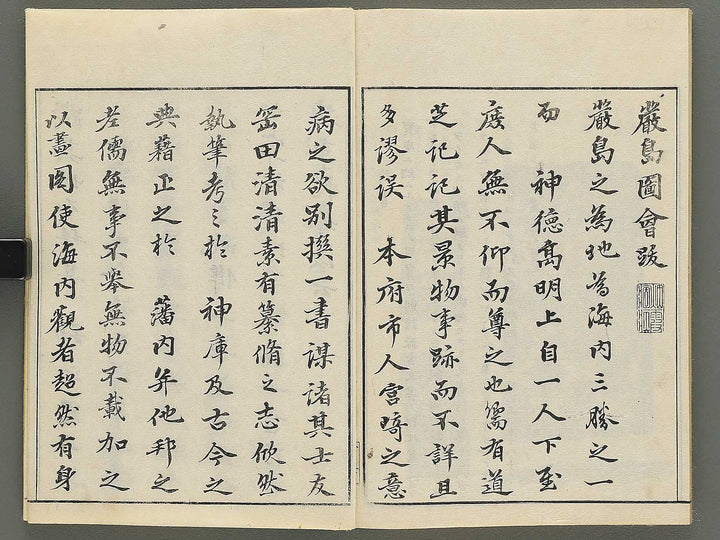 嚴島圖會跋
嚴島之為地為海内三勝之一
而　神德髙明上自一人下至
庻人無不仰而尊之也舊有道
芝記記其景物事跡而不詳且
多謬误　本府市人宮﨑之意
病之欲别撰一書謀諸其士友
岡田清清素有纂脩之志欣然
執筆考之於　神庫及古今之
典藉正之於　藩内并他邦之
老儒無事不舉無物不載加之
以畫图使海内觀者超然有身